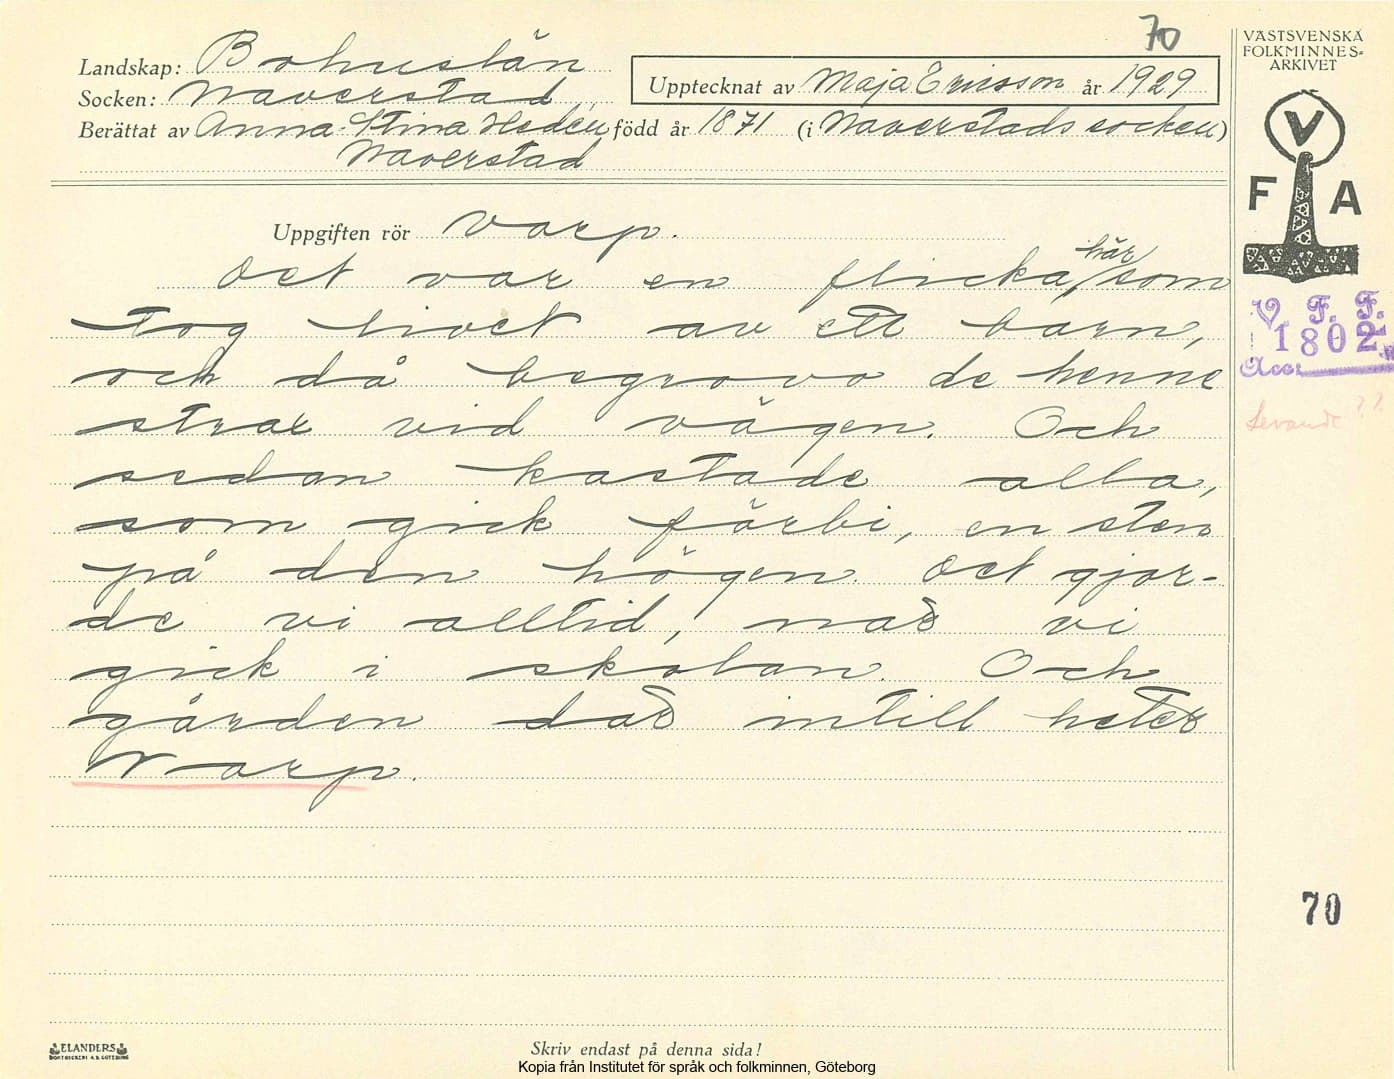 70
VÄSTSVENSKA
FOLKMINNES-
ARKIVET
Landskap: Bohuslän
Upptecknat av Maja Ericsson år 1929
Socken: Naverstad
Berättat av Anna-Stina Hedén född år 1871 (i Naverstads socken)
Naverstad
V
F A
Uppgiften rör Varp.
här
Det var en flicka, som
tog livet av ett barn,
och då begrovo de henne
strax vid vägen. Och
sedan kastade alla,
som gick förbi, en sten
på den högen. Det gjor-
de vi alltid, när vi
gick i skolan. Och
gården där intill heter
Varp.
V. F. F.
1802
Acc.
Levande ??
70
ELANDERS
BOKTRYCKERI A.B. GÖTEBORG
Skriv endast på denna sida!
Kopia från Institutet för språk och folkminnen, Göteborg